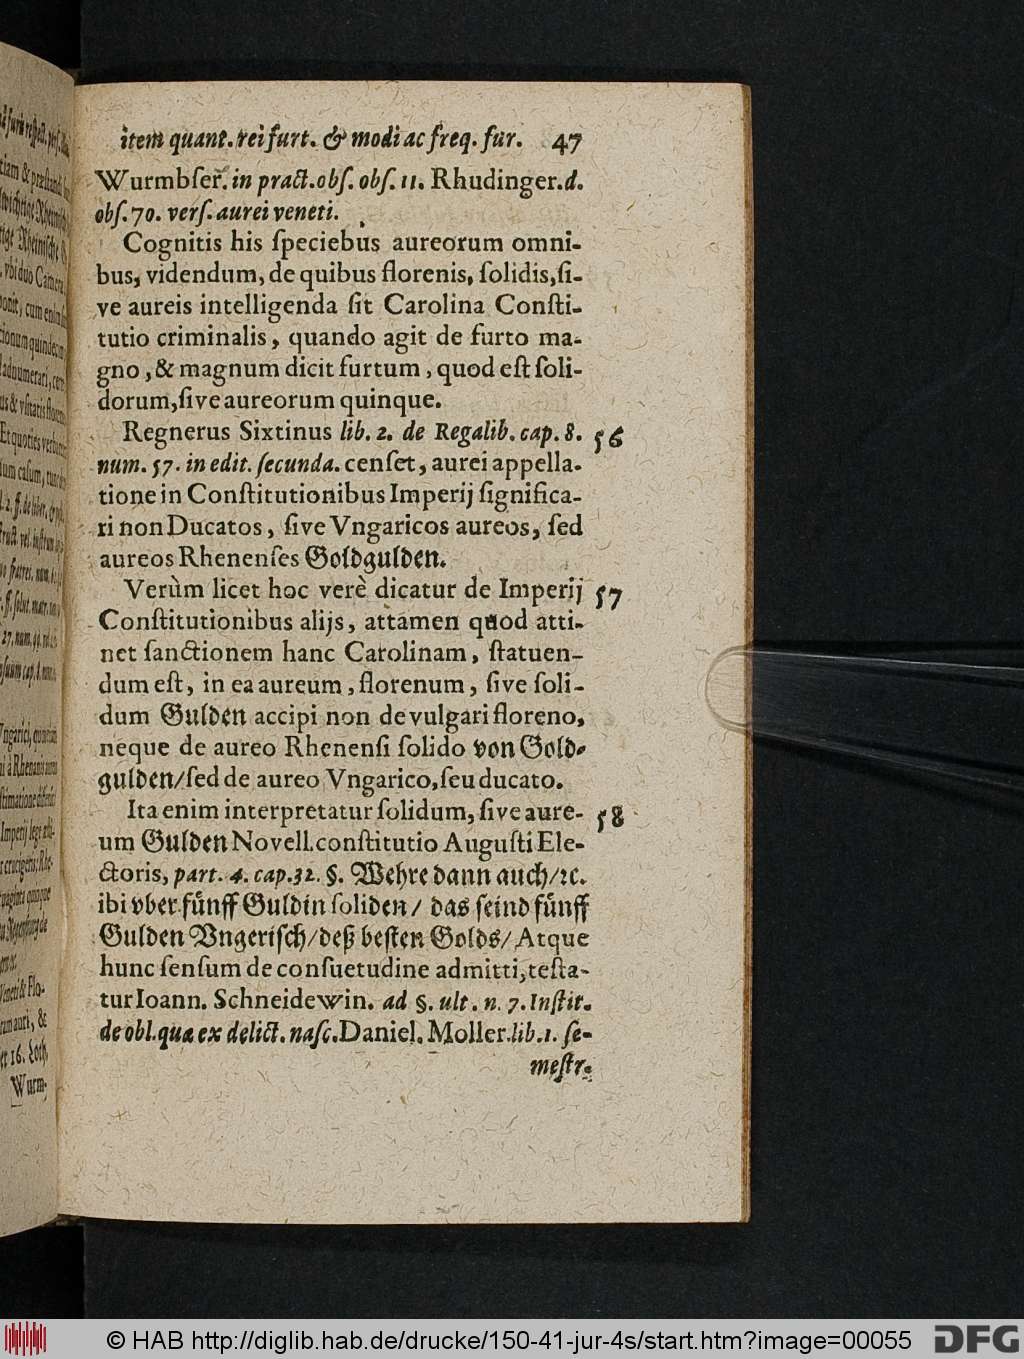 item quant. rei furt. & modi ac freq. fur. 47
Wurmbſer. in pract. obſ. obſ. 11. Rhudinger. d.
obſ. 70. verſ. aurei veneti.
Cognitis his ſpeciebus aureorum omni-
bus, videndum, de quibus florenis, ſolidis, ſi-
ve aureis intelligenda ſit Carolina Conſti-
tutio criminalis, quando agit de furto ma-
gno, & magnum dicit furtum, quod eſt ſoli-
dorum, ſive aureorum quinque.
Regnerus Sixtinus lib. 2. de Regalib. cap. 8. 56
num. 57. in edit. ſecunda. cenſet, aurei appella-
tione in Conſtitutionibus Imperij ſignifica-
ri non Ducatos, ſive Vngaricos aureos, ſed
aureos Rhenenſes Goldgulden.
Verùm licet hoc verè dicatur de Imperij 57
Conſtitutionibus alijs, attamen quod atti-
net ſanctionem hanc Carolinam, ſtatuen-
dum eſt, in ea aureum, florenum, ſive ſoli-
dum Gulden accipi non de vulgari floreno,
neque de aureo Rhenenſi ſolido von Gold-
gulden/ ſed de aureo Vngarico, ſeu ducato.
Ita enim interpretatur ſolidum, ſive aure- 58
um Gulden Novell. conſtitutio Auguſti Ele-
ctoris, part. 4. cap. 32. §. Wehre dann auch/ ꝛc.
ibi vber fünff Guldin ſoliden/ das ſeind fünff
Gulden Vngeriſch/ deß beſten Golds/ Atque
hunc ſenſum de conſuetudine admitti, teſta-
tur Ioann. Schneidewin. ad §. ult. n. 7. Inſtit.
de obl. quæ ex delict. naſc. Daniel. Moller. lib. 1. ſe-
meſtr.
Wurm-
© HAB http://diglib.hab.de/drucke/150-41-jur-4s/start.htm?image=00055
DFG